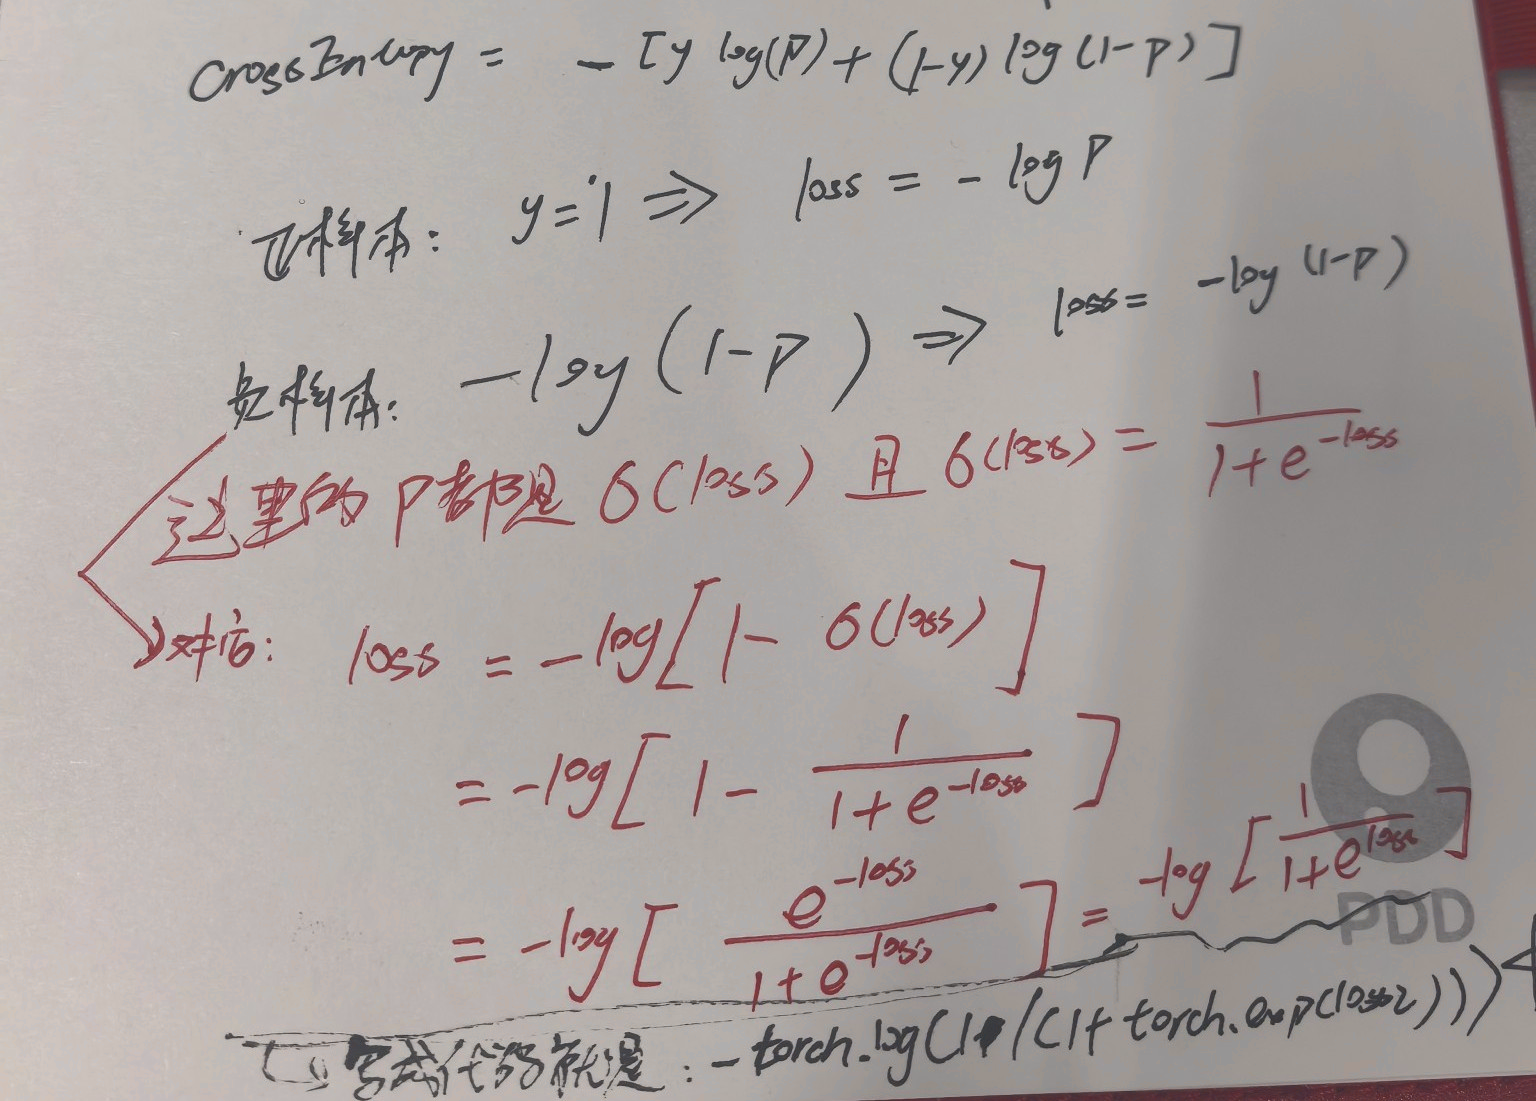 CrossEntropy = - [y log(P) + (1-y) log (1-P)]
正样本: y=1 ⇒ loss = - log P
负样本: -log (1-P) ⇒ loss = -log (1-P)
这里的 P都是 σ(loss) 且 σ(loss) = 1/(1+e^{-loss})
对应: loss = -log[1 - σ(loss)]
= -log[1 - 1/(1+e^{-loss})]
= -log[e^{-loss}/(1+e^{-loss})] = -log[1/(1+e^{loss})]
PDD
写成代码就是: -torch.log(1/(1+torch.exp(loss2)))